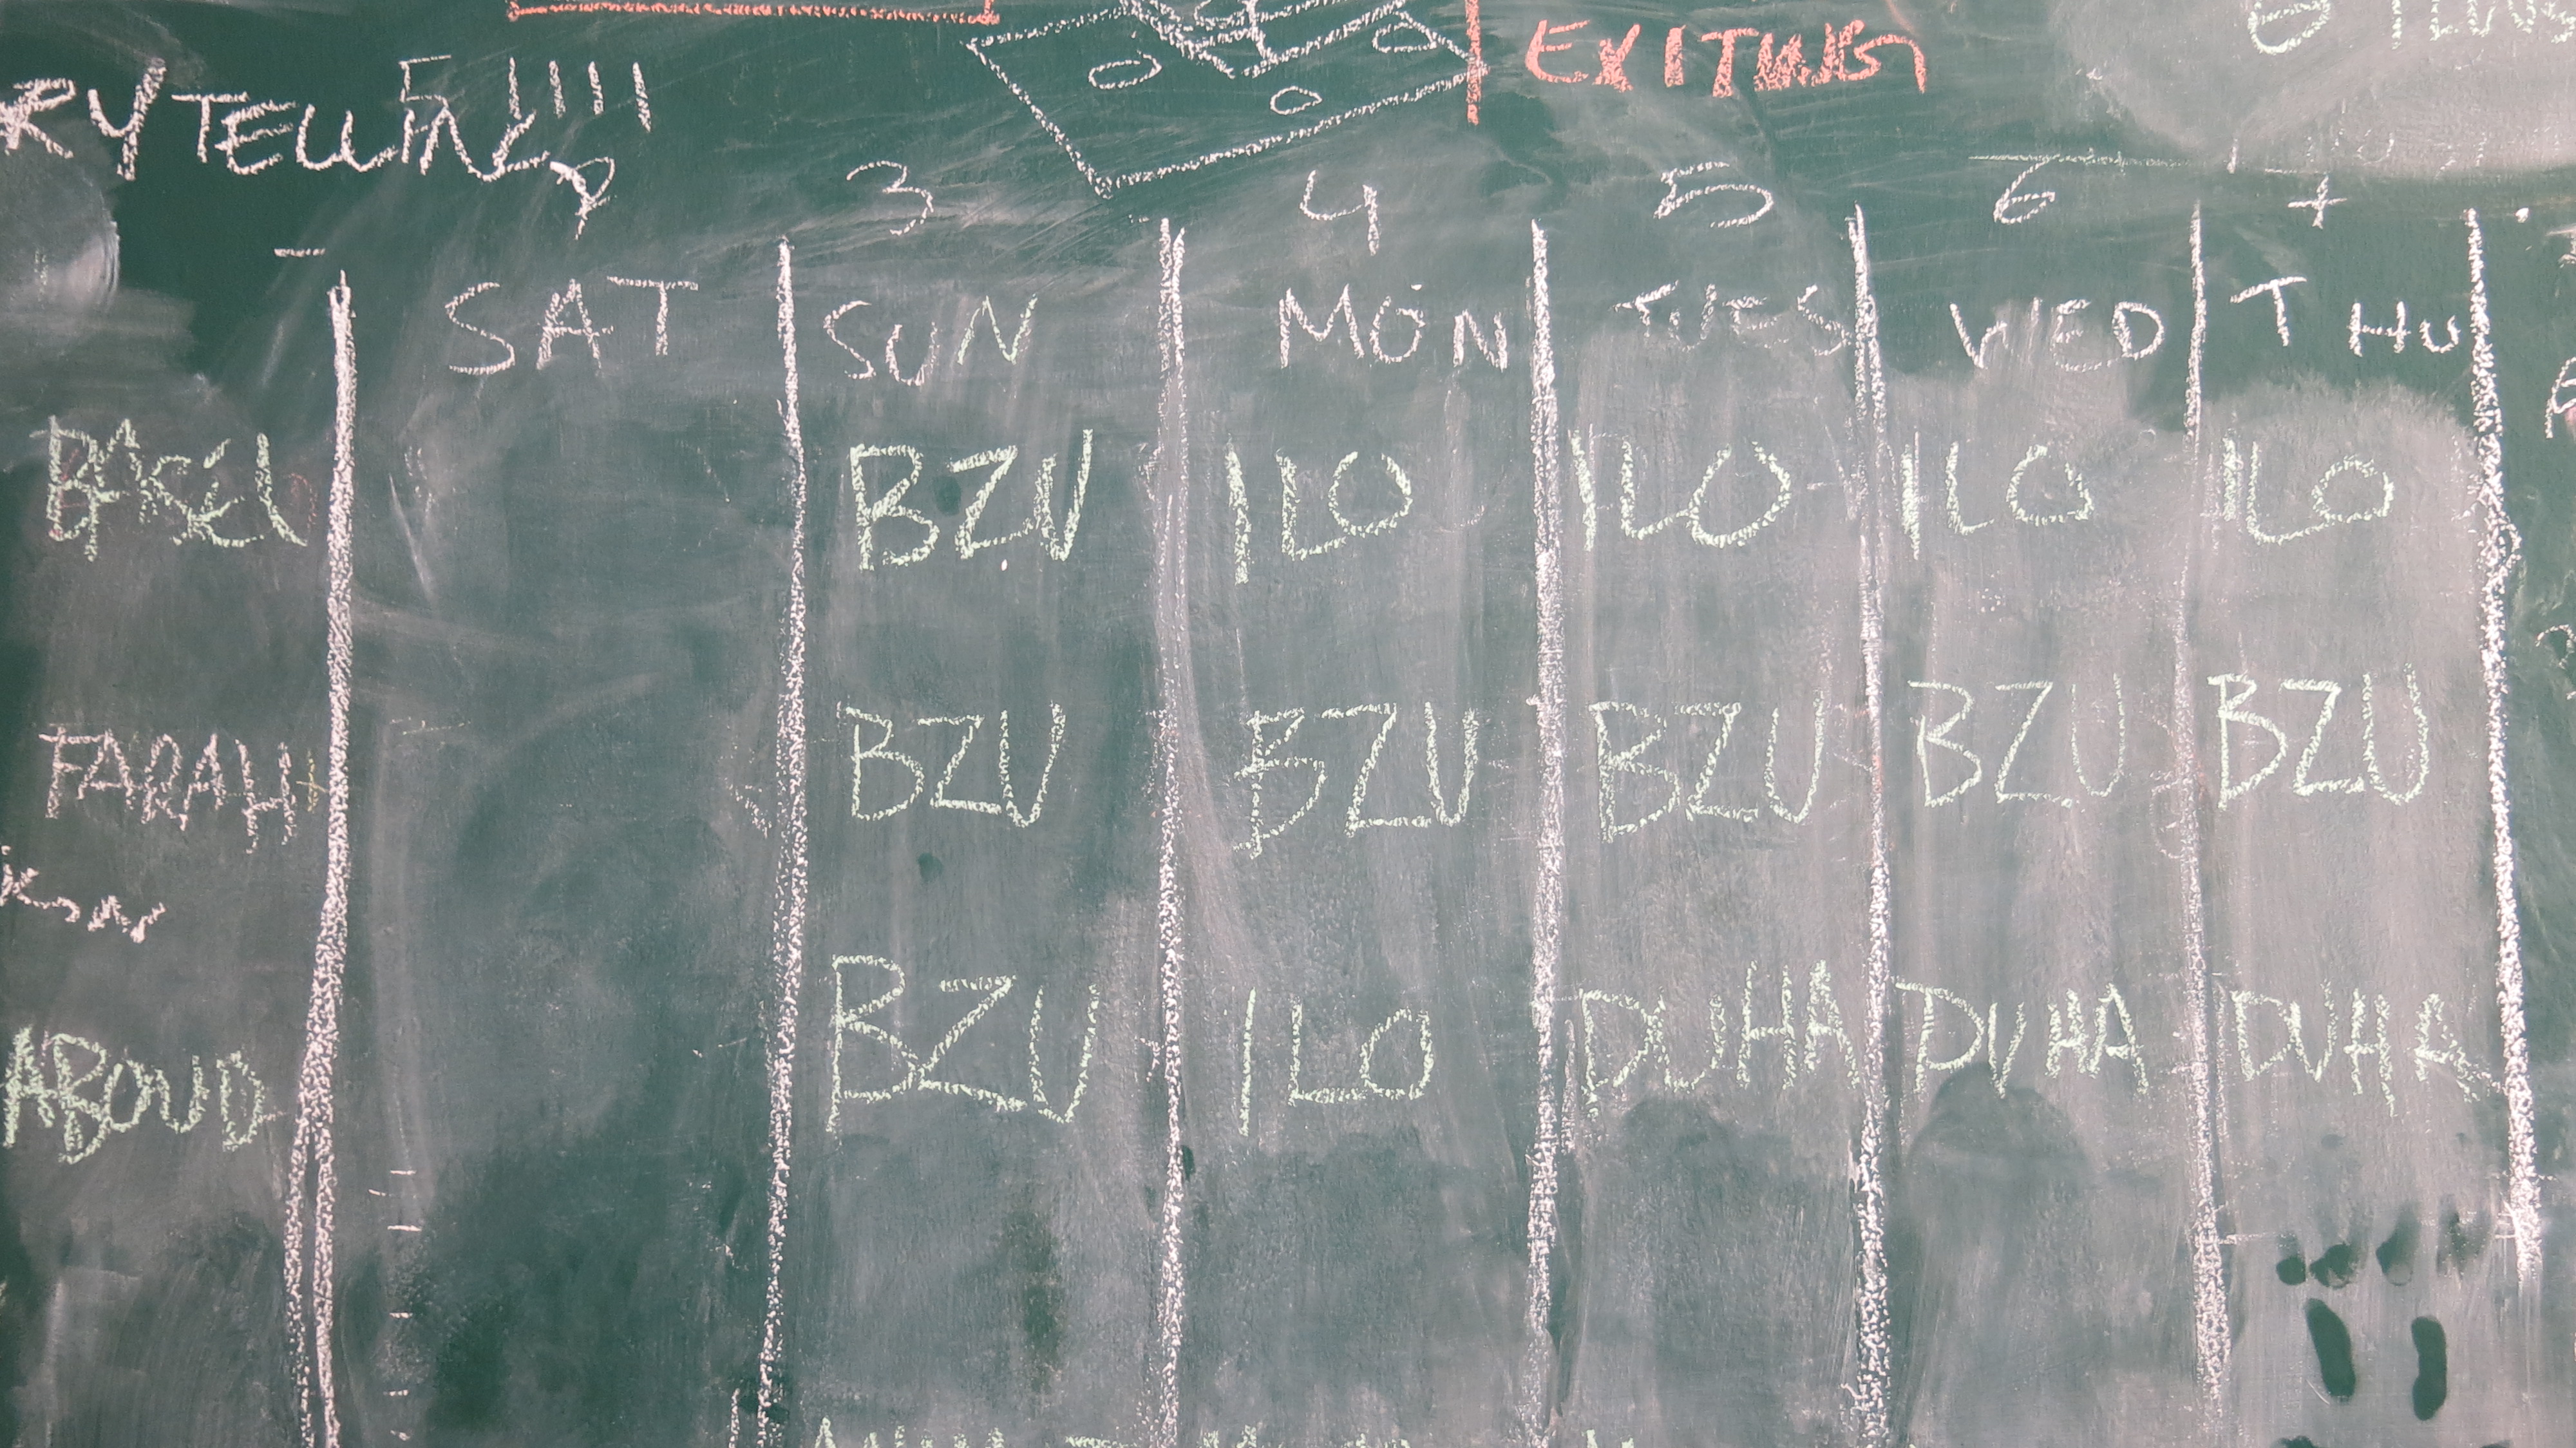 EXITING
RYTELLING
3 4 5 6 7
SAT SUN MON TUES WED THU
BASEL BZU ILO ILO ILO ILO
FARAH BZU BZU BZU BZU BZU
ABOUD BZU ILO DUHA DUHA DUHA